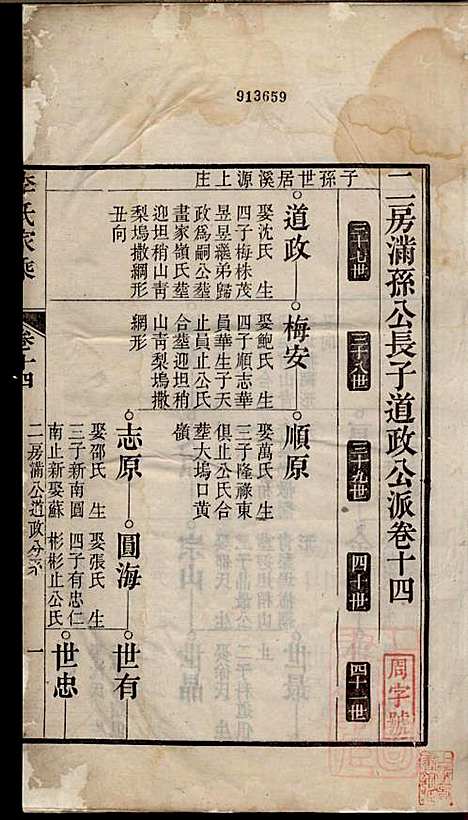 913659
二房滿孫公長子道政公派卷十四
三十七世
三十八世
三十九世
四十世
四十一世
周字號
子孫世居溪源上庄
道政
娶沈氏 生
四子梅株茂
昱昱繼弟歸
政為嗣公塟
畫家嶺氏塟
迎坦稍山靑
梨塢撒網形
丑向
梅安
娶鮑氏 生
四子順志華
員華生子天
止員止公氏
合塟迎坦稍
山靑梨塢撒
網形
順原
娶萬氏 生
三子隆祿東
俱止公氏合
塟大塢口黃
嶺
志原
娶邵氏 生
三子新南圓
南止新娶蘇
圓海
娶張氏 生
四子有忠仁
彬彬止公氏
世有
世忠
李氏家乘
卷十四
二房滿公道政分系
一